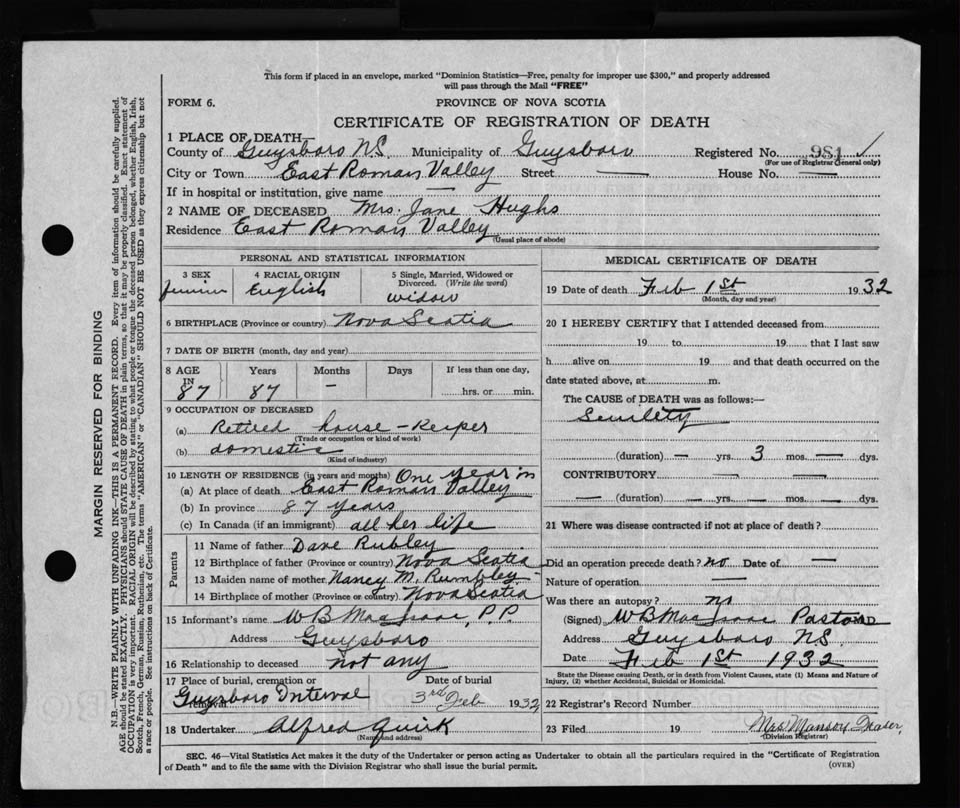 This form if placed in an envelope, marked "Dominion Statistics—Free, penalty for improper use $300," and properly addressed
will pass through the Mail "FREE"
FORM 6.
PROVINCE OF NOVA SCOTIA
CERTIFICATE OF REGISTRATION OF DEATH
1 PLACE OF DEATH—
County of Guysboro N.S. Municipality of Guysboro Registered No. 981
(For use of Registrar General only)
City or Town East Roman Valley Street — House No. —
If in hospital or institution, give name —
2 NAME OF DECEASED Mrs. Jane Hughs
Residence East Roman Valley
(Usual place of abode)
PERSONAL AND STATISTICAL INFORMATION
3 SEX
4 RACIAL ORIGIN English
5 Single, Married, Widowed or Divorced. (Write the word)
widow
6 BIRTHPLACE (Province or country) Nova Scotia
7 DATE OF BIRTH (month, day and year)
8 AGE IN 87
Years 87
Months –
Days
If less than one day,
hrs. or min.
9 OCCUPATION OF DECEASED
(a) Retired house-Keeper
(Trade or occupation or kind of work)
(b) domestic
(Kind of industry)
10 LENGTH OF RESIDENCE (in years and months) One year in
(a) At place of death East Roman Valley
(b) In province 87 years
(c) In Canada (if an immigrant) all her life
Parents
11 Name of father Dave Rubley
12 Birthplace of father (Province or country) Nova Scotia
13 Maiden name of mother Nancy M. Rumbley
14 Birthplace of mother (Province or country) Nova Scotia
15 Informant's name W B P.P.
Address Guysboro
16 Relationship to deceased not any
17 Place of burial, cremation or
Guysboro Interval
Date of burial
3rd Feb 1932
18 Undertaker Alfred Quirk
(Name and address)
MEDICAL CERTIFICATE OF DEATH
19 Date of death Feb 1st 1932
(Month, day and year)
20 I HEREBY CERTIFY that I attended deceased from
19 to 19 that I last saw
h alive on 19 and that death occurred on the
date stated above, at m.
The CAUSE of DEATH was as follows:—
Senilety
(duration) – yrs. 3 mos. – dys.
CONTRIBUTORY — —
— (duration) — yrs. — mos. — dys.
21 Where was disease contracted if not at place of death?
Did an operation precede death? no Date of —
Nature of operation —
Was there an autopsy? no
(Signed) W B Pastor M.D
Address Guysboro N.S.
Date Feb 1st 1932
State the Disease causing Death, or in death from Violent Causes, state (1) Means and Nature of
Injury, (2) whether Accidental, Suicidal or Homicidal.
22 Registrar's Record Number
23 Filed 19 Mrs Manson Fraser,
(Division Registrar)
SEC. 46—Vital Statistics Act makes it the duty of the Undertaker or person acting as Undertaker to obtain all the particulars required in the "Certificate of Registration
of Death" and to file the same with the Division Registrar who shall issue the burial permit.
(OVER)
MARGIN RESERVED FOR BINDING
N.B.—WRITE PLAINLY WITH UNFADING INK—THIS IS A PERMANENT RECORD. Every item of information should be carefully supplied.
AGE should be stated EXACTLY. PHYSICIANS should STATE CAUSE OF DEATH in plain terms, so that it may be properly classified. Exact statement of
OCCUPATION is very important. RACIAL ORIGIN will be described by stating to what people or tongue the deceased person belonged, whether English, Irish,
Scotch, French, German, Russian, Ruthenian, etc. The terms "AMERICAN" or "CANADIAN" SHOULD NOT BE USED as they express citizenship but not
a race or people. See instructions on back of Certificate.